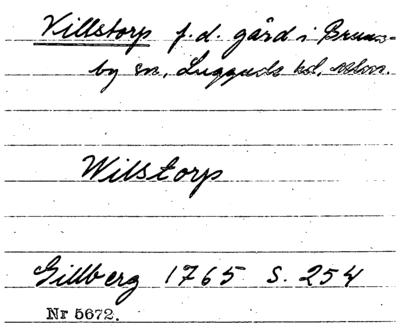 Villstorp f.d. gård i Bruns-
by sn, Luggude hd,
Willstorp
Gillberg 1765 S. 254
Nr 5672.